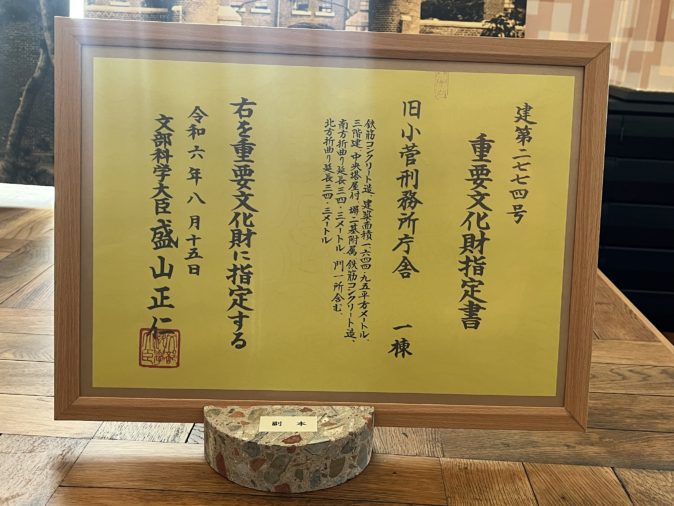 建第二七七四号
重要文化財指定書
旧小菅刑務所庁舎 一棟
鉄筋コンクリート造、建築面積一六四四・九五平方メートル、
三階建、中央塔屋付、塀二基附属、鉄筋コンクリート造、
南方折曲り延長三四・三メートル、門一所含む、
北方折曲り延長三四・三メートル
右を重要文化財に指定する
令和六年八月十五日
文部科学大臣 盛山正仁
副本